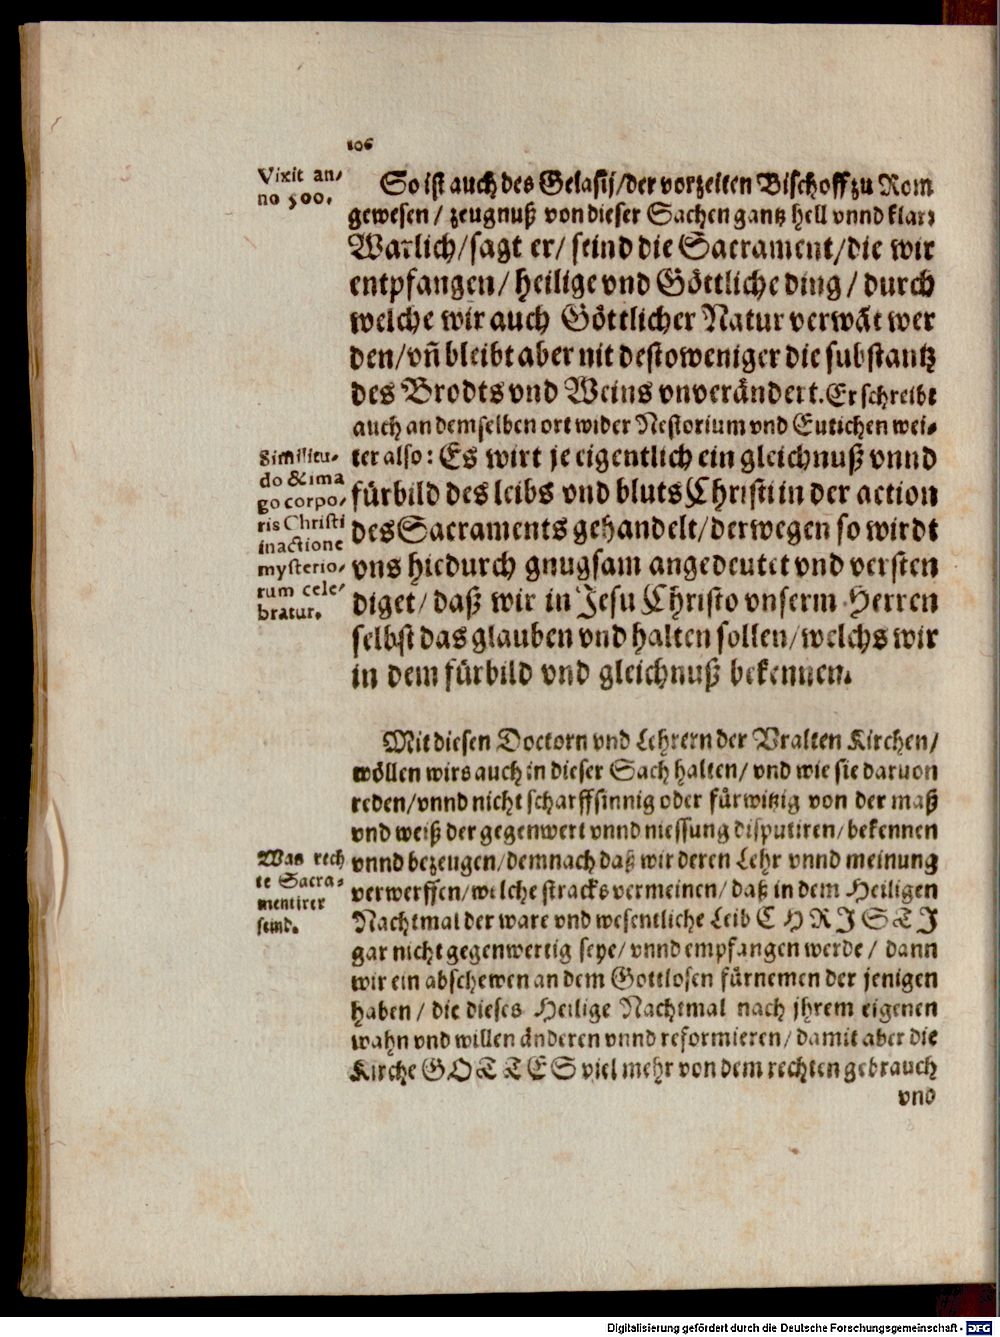 106
Vixit an-
no 500.
So ist auch des Gelasij/der vorzeiten Bischoff zu Rom
gewesen / zeugnuß von dieser Sachen gantz hell vnnd klar:
Warlich/sagt er/ seind die Sacrament/die wir
entpfangen/ heilige vnd Göttliche ding / durch
welche wir auch Göttlicher Natur verwăt wer
den/vñ bleibt aber nit destoweniger die substantz
des Brodts vnd Weins vnverändert. Er schreibt
auch an demselben ort wider Nestorium vnd Eutichen wei-
Similitu-
do & ima
go corpo-
ris Christi
in actione
mysterio-
rum cele-
bratur.
ter also: Es wirt je eigentlich ein gleichnuß vnnd
fürbild des leibs vnd bluts Christi in der action
des Sacraments gehandelt/derwegen so wirdt
vns hiedurch gnugsam angedeutet vnd versten
diget/ daß wir in Jesu Christo vnserm Herren
selbst das glauben vnd halten sollen/welchs wir
in dem fürbild vnd gleichnuß bekennen.
Mit diesen Doctorn vnd Lehrern der Vralten Kirchen/
wöllen wirs auch in dieser Sach halten/ vnd wie sie daruon
reden/vnnd nicht scharffsinnig oder fürwitzig von der maß
vnd weiß der gegenwert vnnd niessung disputiren/bekennen
Was rech
te Sacra-
mentirer
seind.
vnnd bezeugen/demnach daß wir deren Lehr vnnd meinung
verwerffen/welche stracks vermeinen/ daß in dem Heiligen
Nachtmal der ware vnd wesentliche Leib CHRISTI
gar nicht gegenwertig seye/ vnnd empfangen werde / dann
wir ein abschewen an dem Gottlosen fürnemen der jenigen
haben / die dieses Heilige Nachtmal nach jhrem eigenen
wahn vnd willen änderen vnnd reformieren/ damit aber die
Kirche GOTTES viel mehr von dem rechten gebrauch
vnd
Digitalisierung gefördert durch die Deutsche Forschungsgemeinschaft - DFG